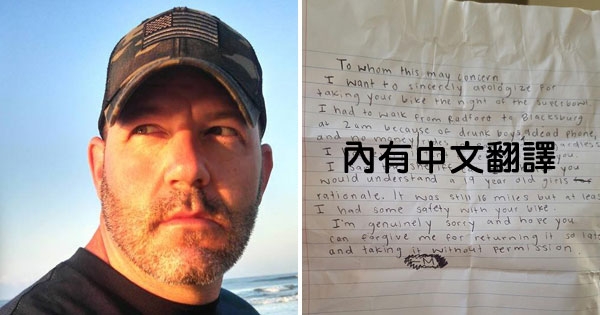 To whom this may concern
I want to sincerely apologize for
taking your bike the night of the superbowl.
I had to walk from Radford to Blacksburg
at 2am because of drunk boys, dead phone,
and no money
內有中文翻譯
I you
would understand a 19 year old girls
rationale. It was still 16 miles but at least
I had some safety with your bike.
I'm genuinely sorry and hope you
can forgive me for returning it so late
and taking it without permission.